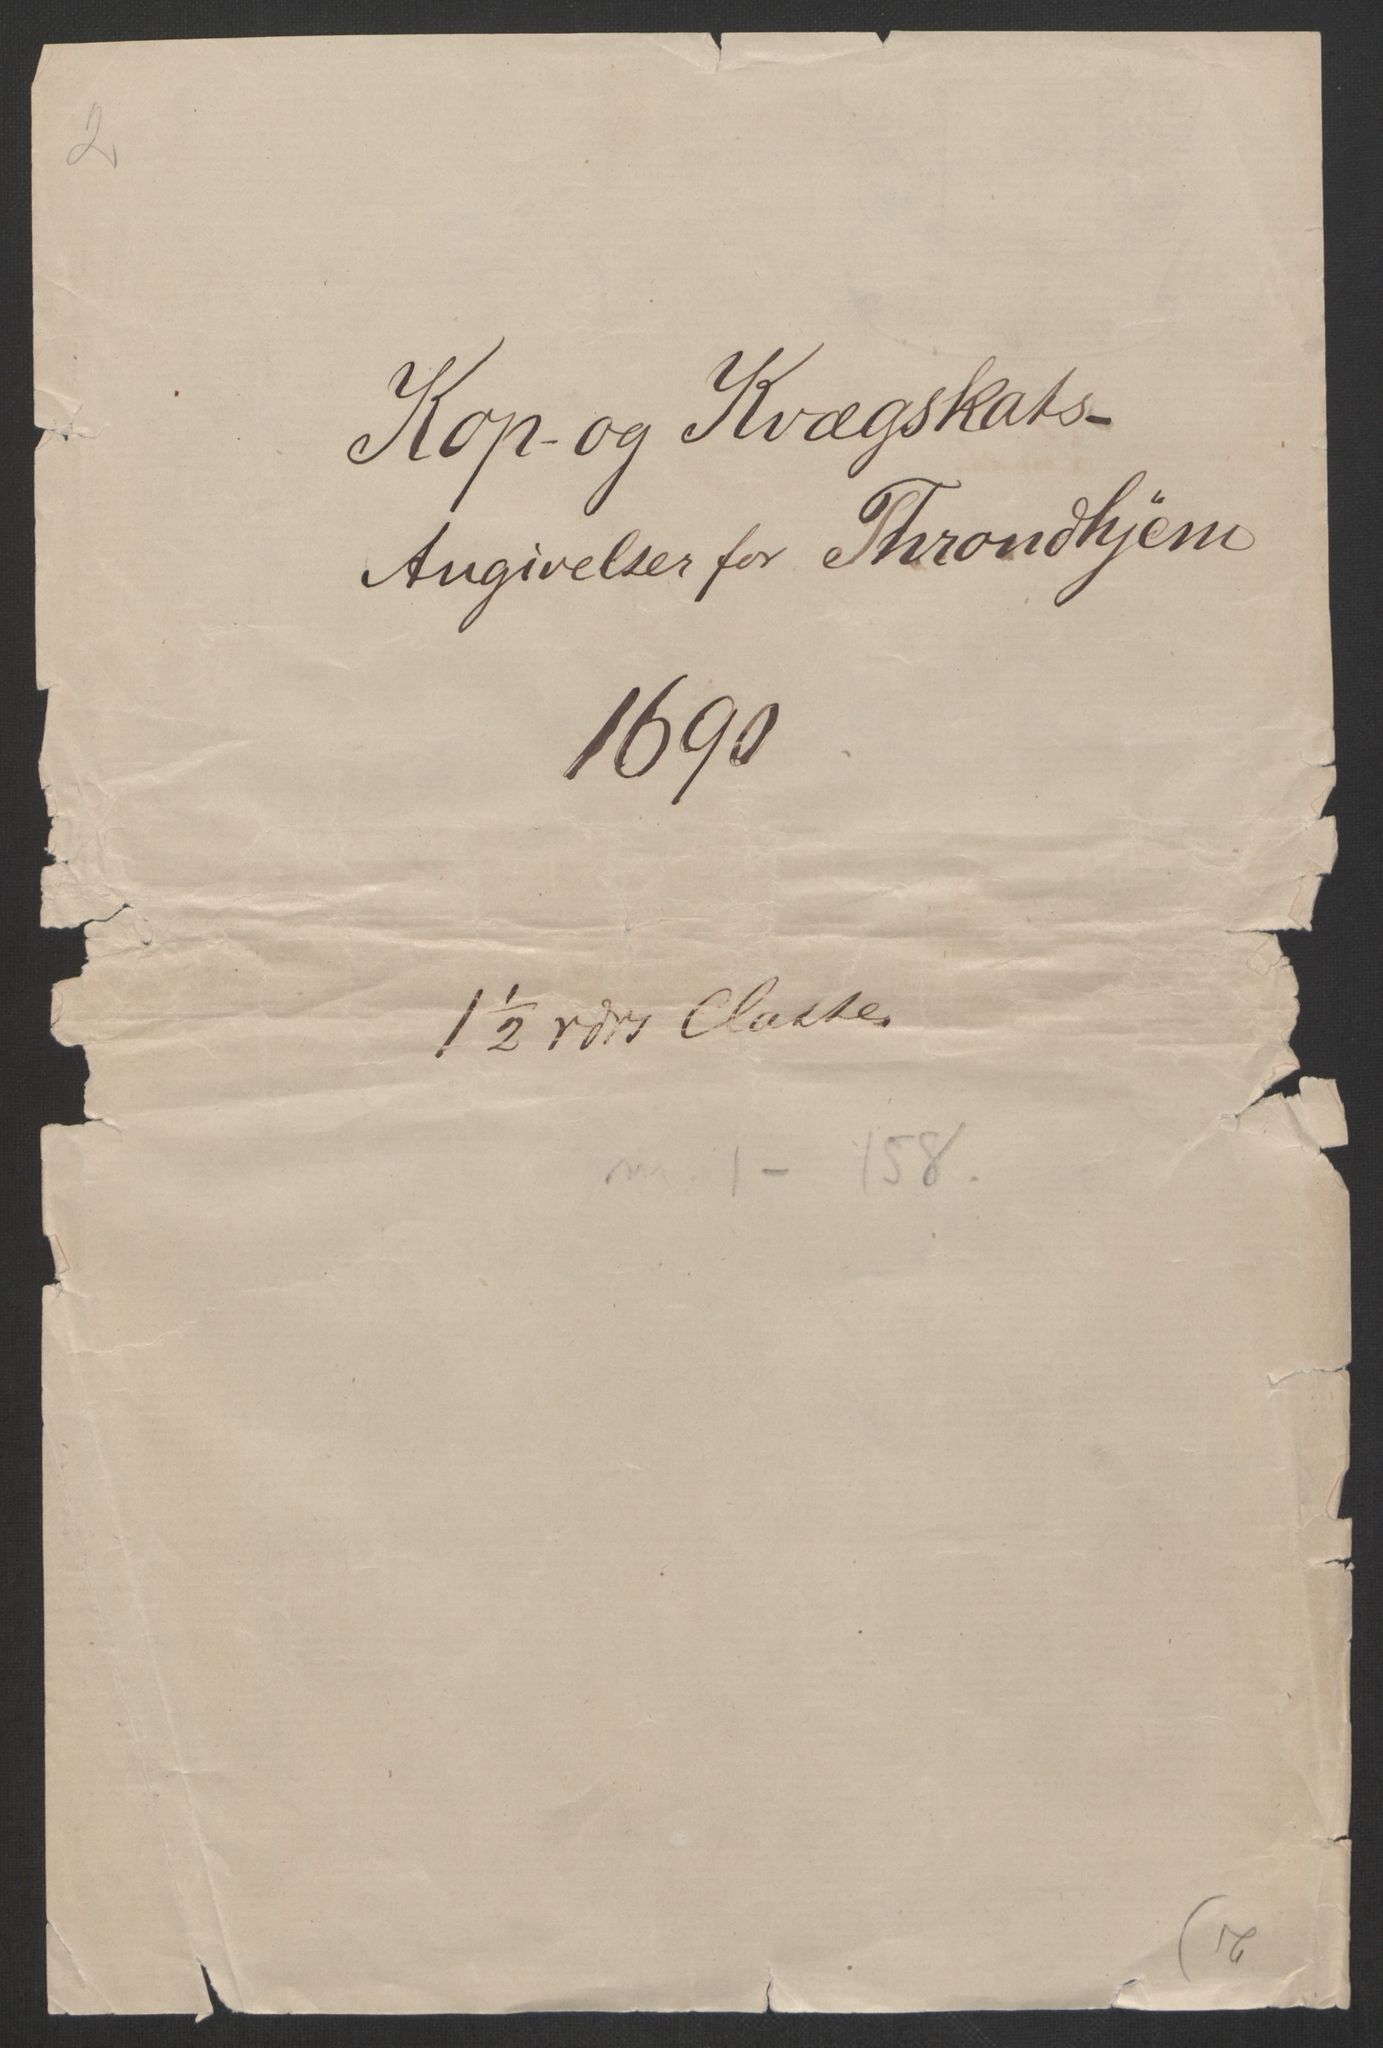 2
Kop- og Kvægskats-
Angivelser for Throndhjem
1690
1 1/2 rdrs Classe.
1 - 158.